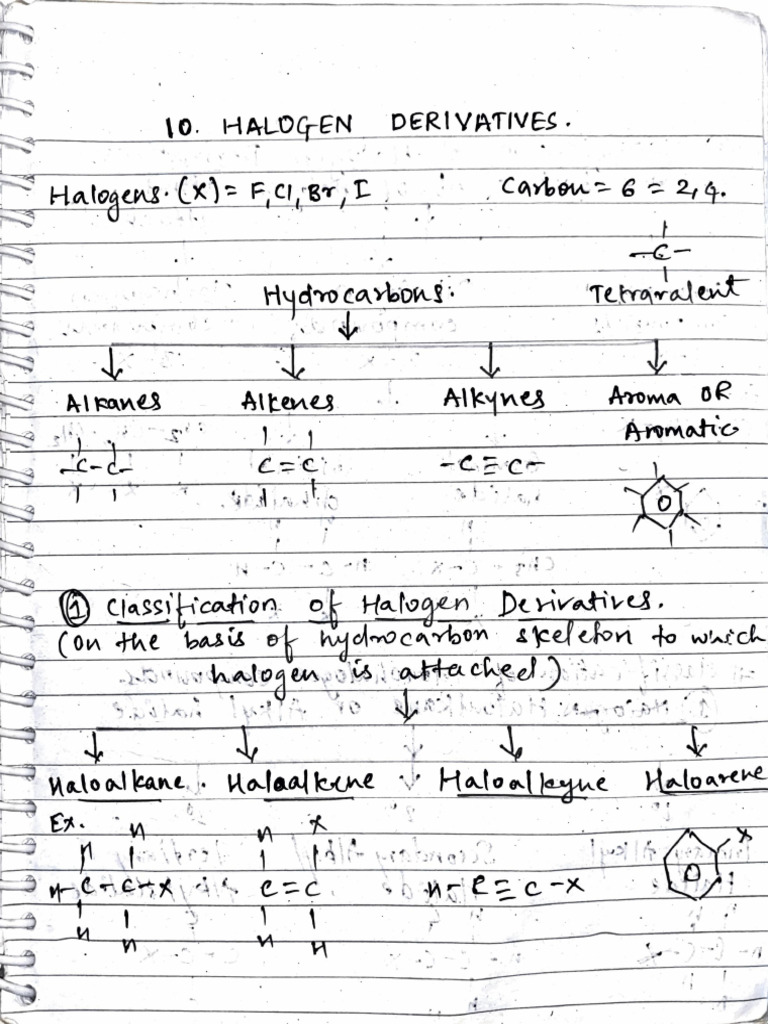 10. HALOGEN DERIVATIVES.
Halogens. (X) = F, Cl, Br, I Carbon = 6 = 2,4.
-C-
Hydrocarbons. Tetravalent
Alkanes Alkenes Alkynes Aroma OR
Aromatic
-C-C- C=C -C≡C-
① Classification of Halogen Derivatives.
(on the basis of hydrocarbon skeleton to which
halogen is attached)
Haloalkane. Haloalkene Haloalkyne Haloarene
Ex. H H X
H X
H-C-C-X C=C H-C≡C-X
H H H H